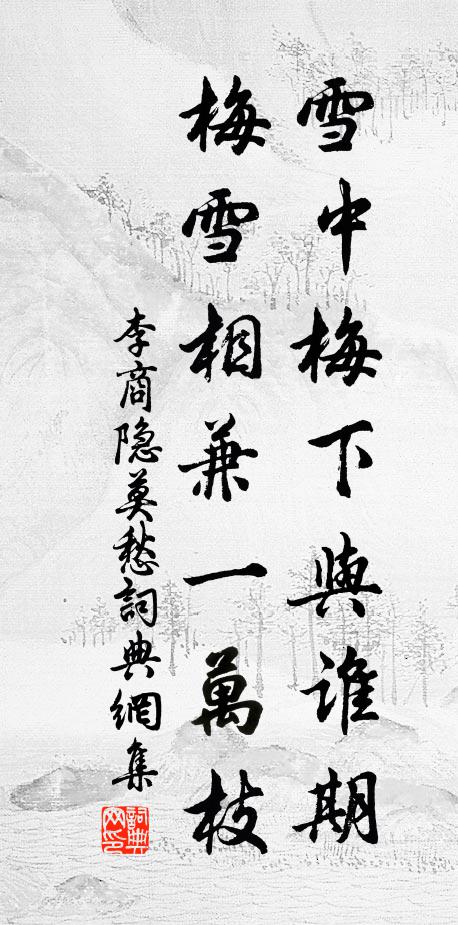 雪中梅下與誰期
梅雪相兼一萬枝
李商隐莫愁詞典網集
詞典
网印